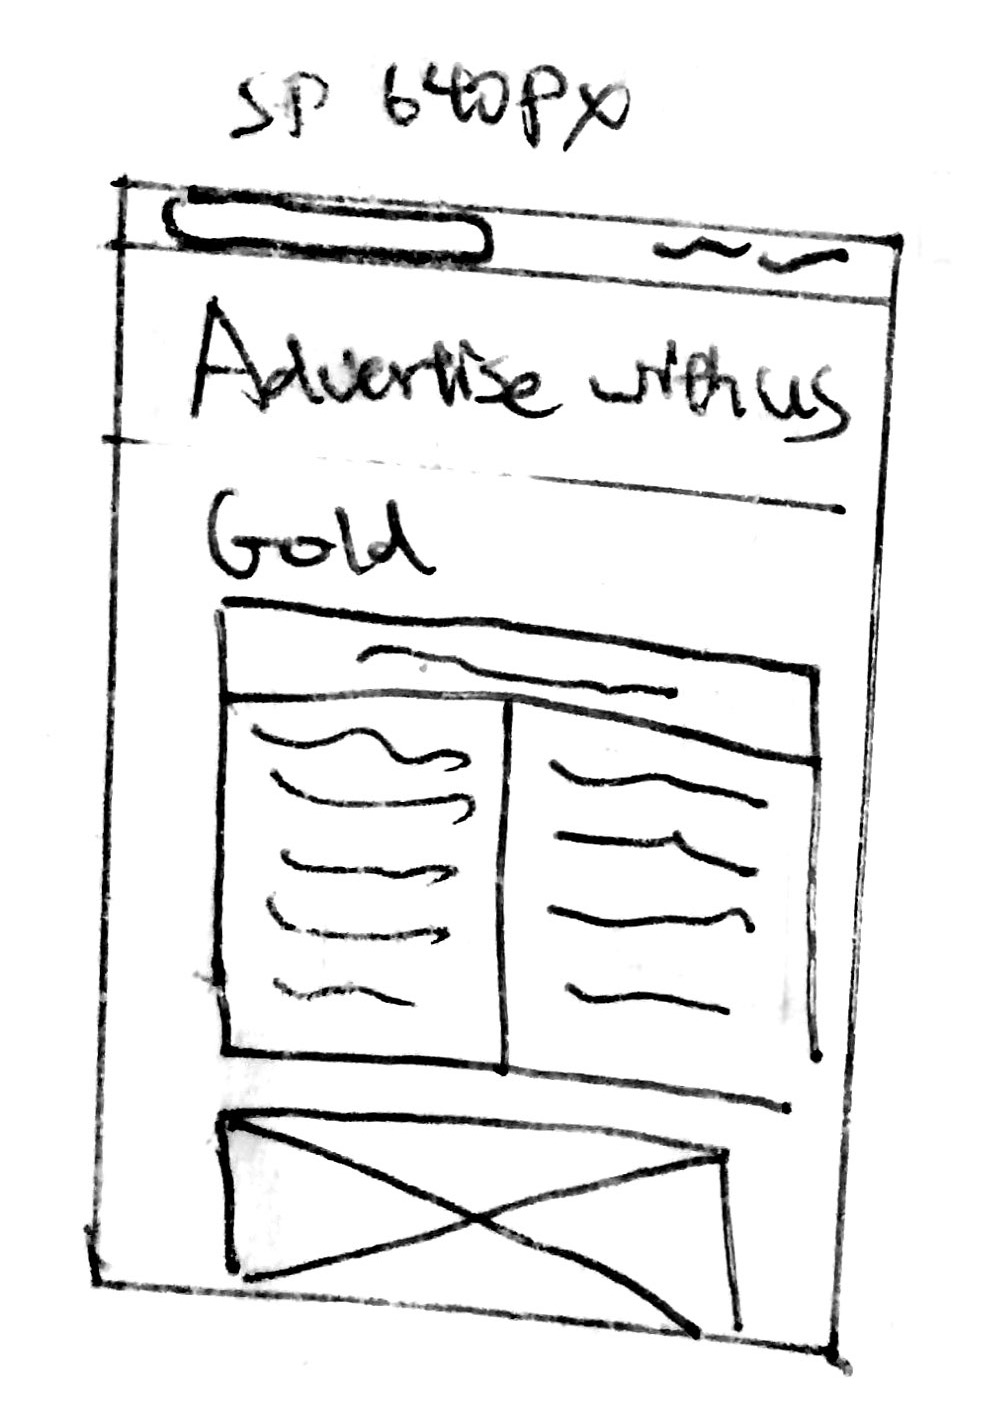 SP 640px
Advertise with us
Gold